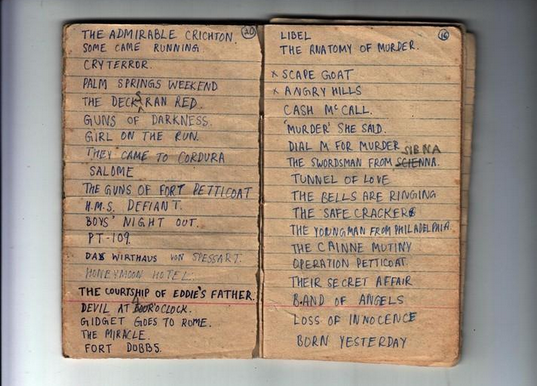 20
THE ADMIRABLE CRICHTON.
SOME CAME RUNNING
CRY TERROR.
PALM SPRINGS WEEKEND
THE DECKS RAN RED.
GUNS OF DARKNESS.
GIRL ON THE RUN.
THEY CAME TO CORDURA
SALOME
THE GUNS OF FORT PETTICOAT
H.M.S. DEFIANT.
BOYS' NIGHT OUT.
PT-109.
DAS WIRTHAUS VON SPESSART.
HONEYMOON HOTEL.
THE COURTSHIP OF EDDIE'S FATHER.
DEVIL AT O'CLOCK.
GIDGET GOES TO ROME.
THE MIRACLE.
FORT DOBBS.
16
LIBEL
THE ANATOMY OF MURDER.
x SCAPE GOAT
x ANGRY HILLS
CASH McCALL.
'MURDER' SHE SAID.
DIAL M FOR MURDER
THE SWORDSMAN FROM SCIENNA. SIENA
TUNNEL OF LOVE
THE BELLS ARE RINGING
THE SAFE CRACKERS
THE YOUNG MAN FROM PHILADELPHIA
THE CAINNE MUTINY
OPERATION PETTICOAT.
THEIR SECRET AFFAIR
BAND OF ANGELS
LOSS OF INNOCENCE
BORN YESTERDAY